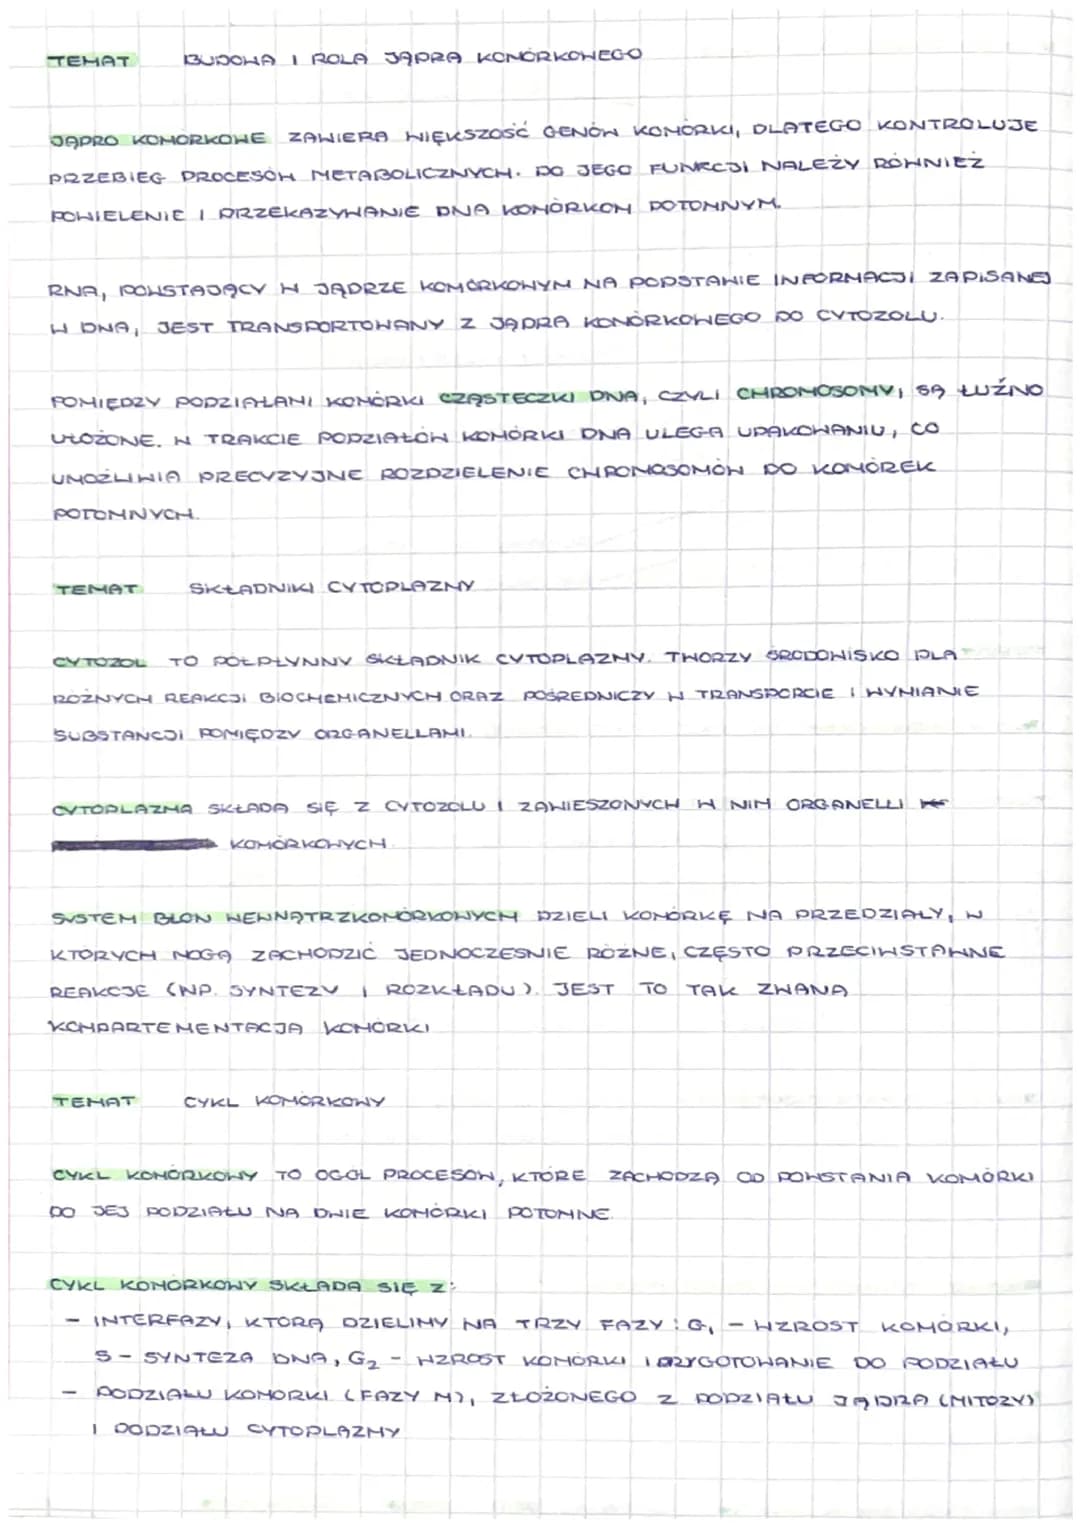 TEMAT BUDOWA I ROLA JĄDRA KOMÓRKOWEGO
JĄDRO KOMÓRKOWE ZAWIERA WIĘKSZOŚĆ GENÓW KOMÓRKI, DLATEGO KONTROLUJE
PRZEBIEG PROCESÓW METABOLICZNYCH. DO JEGO FUNKCJI NALEŻY RÓWNIEŻ
POWIELENIE I PRZEKAZYWANIE DNA KOMÓRKOM POTOMNYM.
RNA, POWSTAJĄCY W JĄDRZE KOMÓRKOWYM NA PODSTAWIE INFORMACJI ZAPISANEJ
W DNA, JEST TRANSPORTOWANY Z JĄDRA KOMÓRKOWEGO DO CYTOZOLU.
POMIĘDZY PODZIAŁAMI KOMÓRKI CZĄSTECZKI DNA, CZYLI CHROMOSOMY, SĄ ŁUŹNO
UŁOŻONE. W TRAKCIE PODZIAŁÓW KOMÓRKI DNA ULEGA UPAKOWANIU, CO
UMOŻLIWIA PRECYZYJNE ROZDZIELENIE CHROMOSOMÓW DO KOMÓREK
POTOMNYCH.
TEMAT SKŁADNIKI CYTOPLAZMY
CYTOZOL TO PÓŁPŁYNNY SKŁADNIK CYTOPLAZMY. TWORZY ŚRODOWISKO DLA
RÓŻNYCH REAKCJI BIOCHEMICZNYCH ORAZ POŚREDNICZY W TRANSPORCIE I WYMIANIE
SUBSTANCJI POMIĘDZY ORGANELLAMI.
CYTOPLAZMA SKŁADA SIĘ Z CYTOZOLU I ZAWIESZONYCH W NIM ORGANELLI
KOMÓRKOWYCH.
SYSTEM BŁON WEWNĄTRZKOMÓRKOWYCH DZIELI KOMÓRKĘ NA PRZEDZIAŁY, W
KTÓRYCH MOGĄ ZACHODZIĆ JEDNOCZEŚNIE RÓŻNE, CZĘSTO PRZECIWSTAWNE
REAKCJE (NP. SYNTEZY I ROZKŁADU). JEST TO TAK ZWANA
KOMPARTEMENTACJA KOMÓRKI
TEMAT CYKL KOMÓRKOWY
CYKL KOMÓRKOWY TO OGÓŁ PROCESÓW, KTÓRE ZACHODZĄ OD POWSTANIA KOMÓRKI
DO JEJ PODZIAŁU NA DWIE KOMÓRKI POTOMNE.
CYKL KOMÓRKOWY SKŁADA SIĘ Z:
- INTERFAZY, KTÓRĄ DZIELIMY NA TRZY FAZY: G₁ - WZROST KOMÓRKI,
S - SYNTEZA DNA, G₂ - WZROST KOMÓRKI I PRZYGOTOWANIE DO PODZIAŁU
- PODZIAŁU KOMÓRKI (FAZY M), ZŁOŻONEGO Z PODZIAŁU JĄDRA (MITOZY)
I PODZIAŁU CYTOPLAZMY